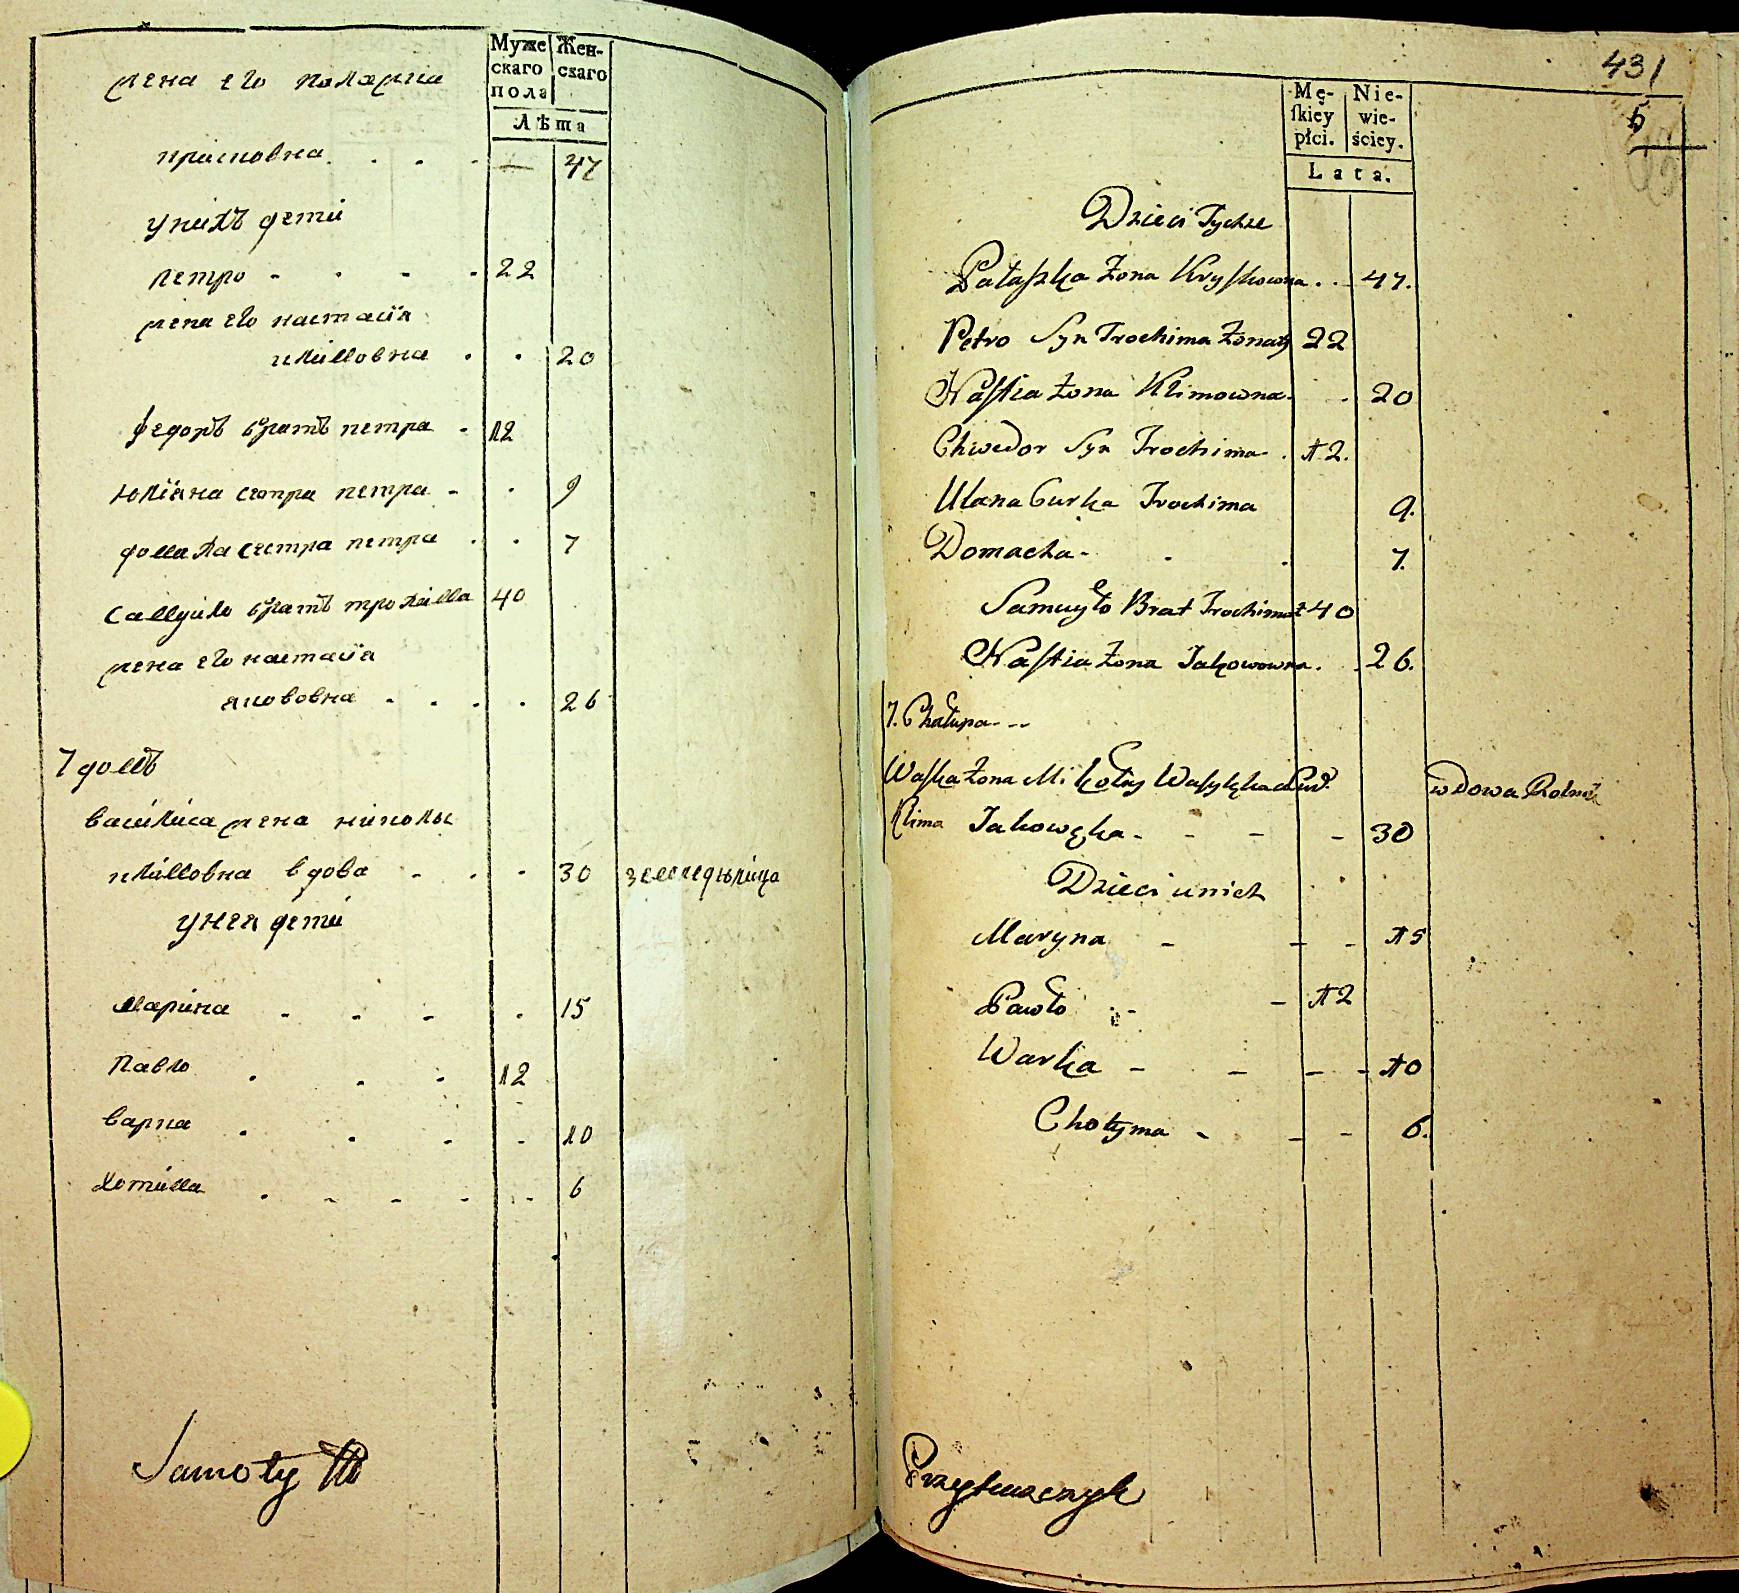 Муже
скаго
пола
Жен-
скаго
Лѣта
жена его палажка
крисковна 47
у нихъ дети
петро 22
жена его настасїя
климовна 20
федоръ братъ петра 12
юлїяна сестра петра 9
домаха сестра петра 7
самуило братъ трохима 40
жена его настасїя
якововна 26
7 домъ
василиса жена николы
климовна вдова 30
у нея дети
марина 15
павло 12
варка 10
хотима 6
Samoty
431
5
Mę-
ſkiey
płci.
Nie-
wie-
ściey.
Lata.
Dzieci Tychże
Pałaſzka żona Kryſkowna 47.
Petro Syn Trochima żonaty 22
Naſtia żona Klimowna 20
Chwedor Syn Trochima 12.
Ulana Curka Trochima 9.
Domacha 7.
Samuyło Brat Trochima 40
Naſtia żona Jakowowna 26.
7. Chałupa
Waſka żona Mikołay
wdowa
Klima Jakowęka 30
Dzieci u nich
Maryna 15
Pawło 12
Warka 10
Chotyma 6.